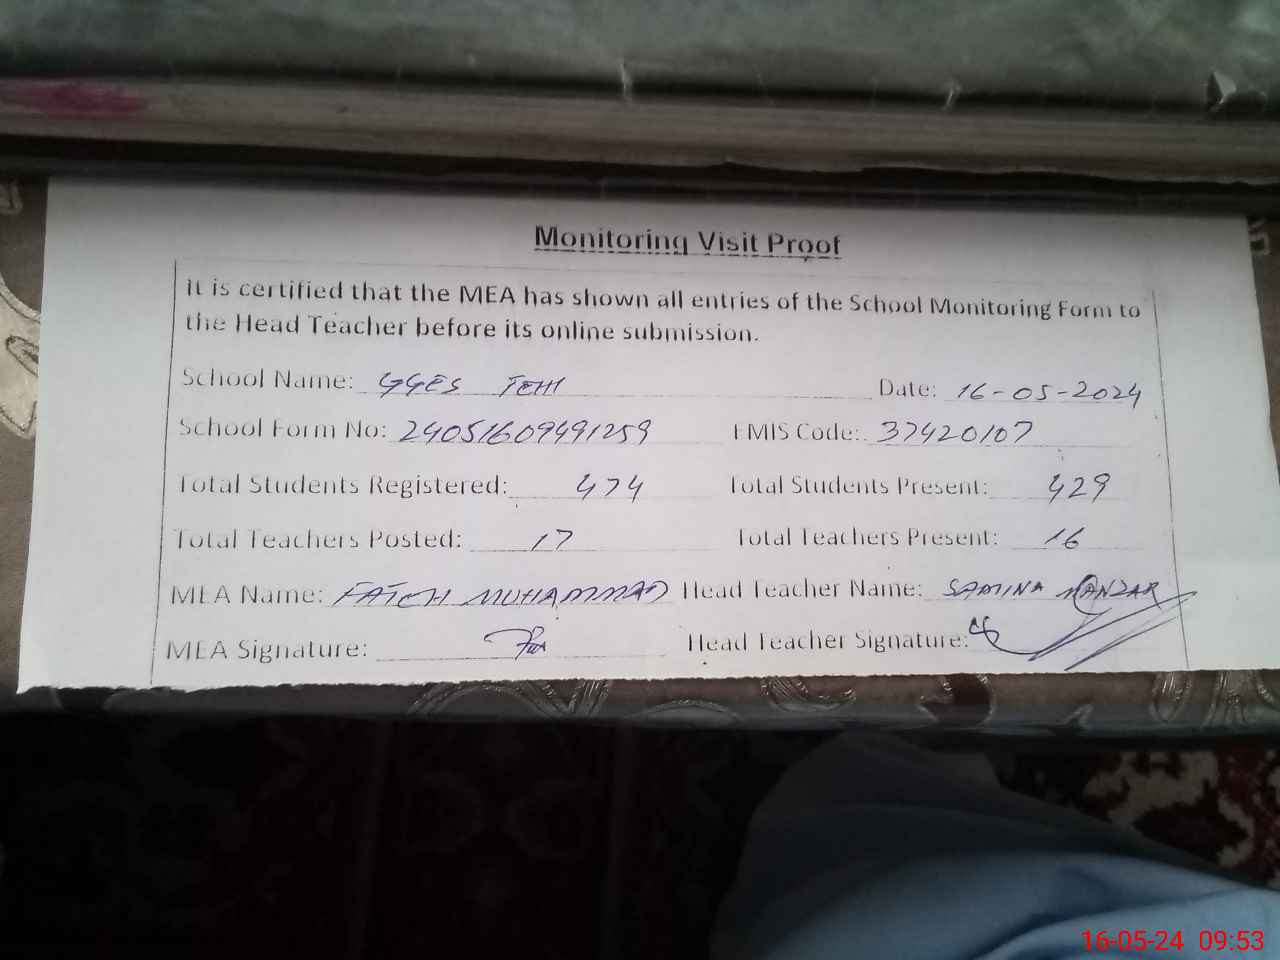 Monitoring Visit Proof
It is certified that the MEA has shown all entries of the School Monitoring Form to
the Head Teacher before its online submission.
School Name: GGES TEHI Date: 16-05-2024
School Form No: 24051609491259 EMIS Code: 37420107
Total Students Registered: 474 Total Students Present: 429
Total Teachers Posted: 17 Total Teachers Present: 16
MEA Name: FATEH MUHAMMAD Head Teacher Name: SAMINA MANZAR
MEA Signature: Head Teacher Signature:
16-05-24 09:53